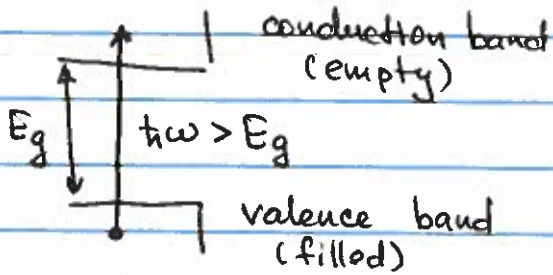 conduction band
(empty)
E_g
ħω > E_g
valence band
(filled)